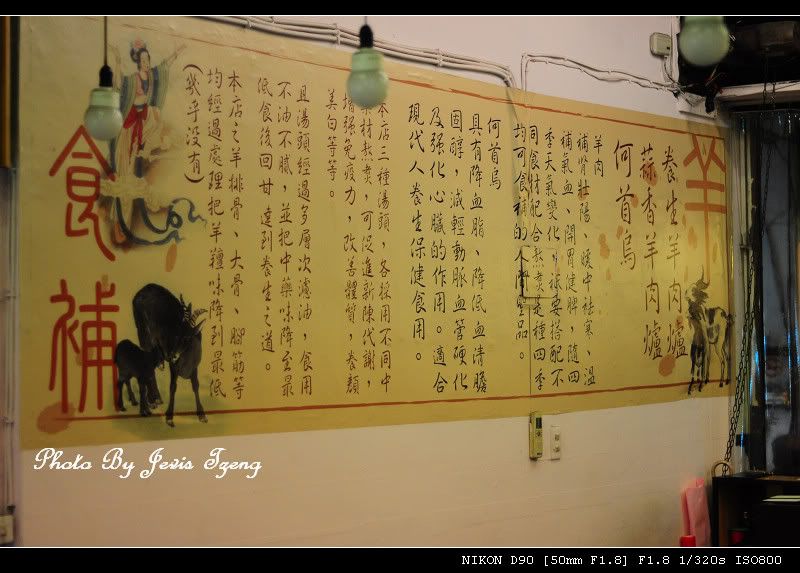 羊
養生羊肉爐
蒜香羊肉爐
何首烏
羊肉
補腎壯陽、暖中祛寒、溫
補氣血、開胃健脾,隨四
季天氣變化,
同食材配合熬煮是種四季
均可食補的
何首烏
具有降血脂、降低血清膽
固醇,減輕動脈血管硬化
及强化心臟的作用。適合
現代人養生保健食用。
本店三種湯頭,各採用不同中
材熬煮,可促進新陳代謝,
增强免疫力,改善體質,養顏
美白等等。
且湯頭經過多層次濾油,食用
不油不膩,並把中藥味降至最
低食後回甘,達到養生之道。
本店之羊排骨、大骨、腳筋等
均經過處理把羊羶味降到最低
(幾乎没有)
食補
Photo By Jevis Tzeng
NIKON D90 [50mm F1.8] F1.8 1/320s ISO800